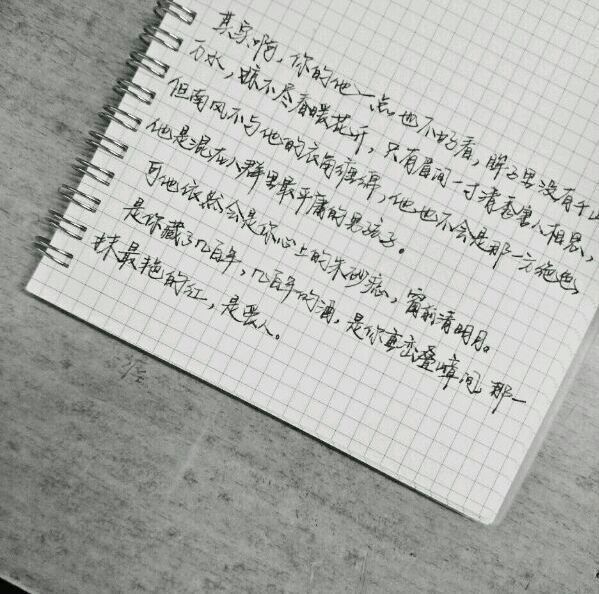 其实啊，你的他一点也不好看，眸子里没有千山
万水，掠不尽春暖花开，只有眉间一寸清卷唐人相思，
但南风不与他的衣角缠绵，他也不会是那一方绝色，
他是混在人群里最平庸的男孩子。
可他依然会是你心上的朱砂痣，窗前清明月。
是你藏了几百年，几百年的酒，是你重峦叠嶂间，那一
抹最艳的红，是爱人。